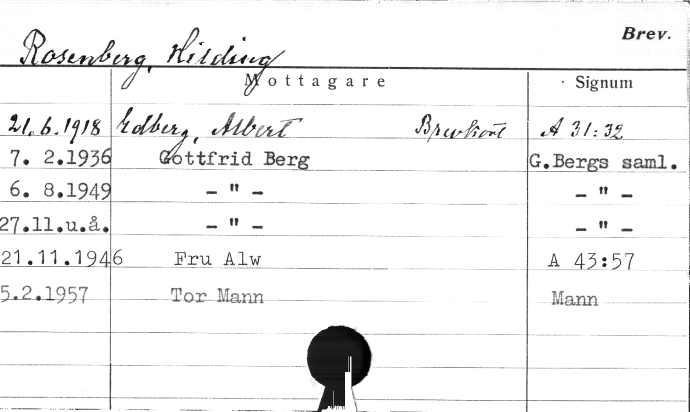 Brev.
Rosenberg, Hilding
Mottagare Signum
21.6.1918 Edberg, Albert Brevkort A 31:32
7. 2.1936 Gottfrid Berg G.Bergs saml.
6. 8.1949 – " – – " –
27.11.u.å. – " – – " –
21.11.1946 Fru Alw A 43:57
5.2.1957 Tor Mann Mann